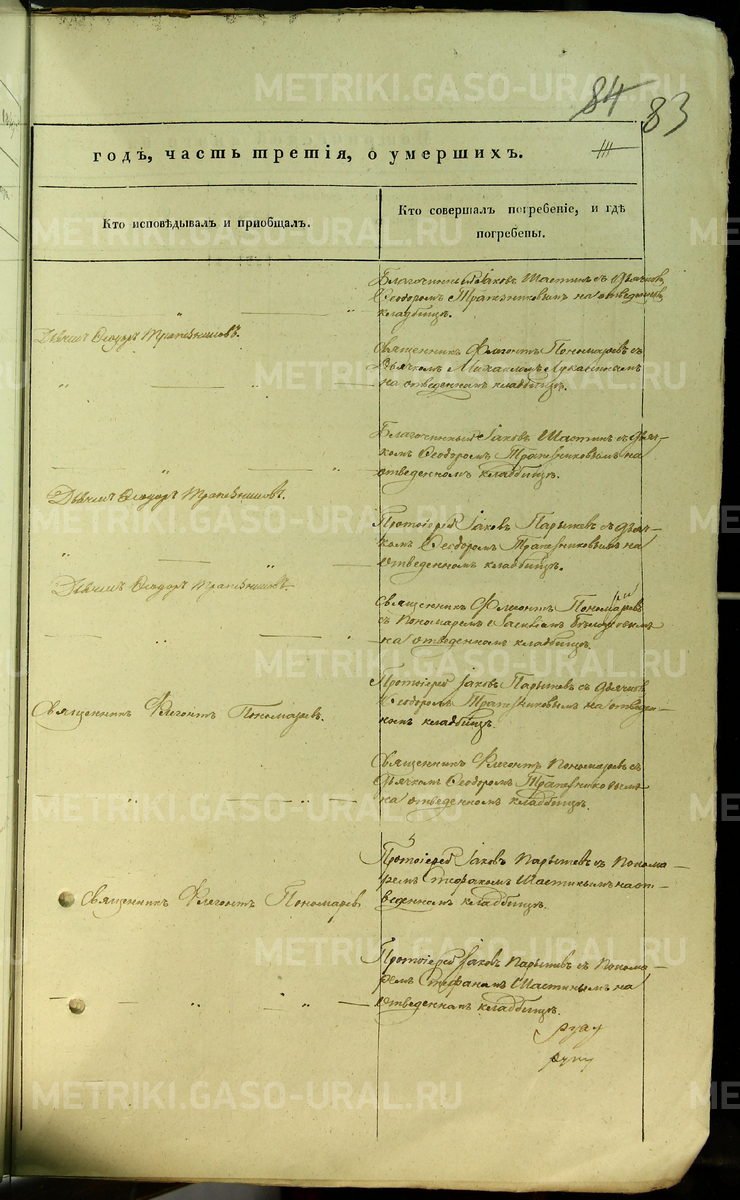 METRIKI.GASO-URAL.RU
84 83
годъ, часть третія, о умершихъ.
Кто исповѣдывалъ и пріобщалъ.
Кто совершалъ погребеніе, и гдѣ
погребены.
Благочинный Іаковъ Шастинъ съ дьячкомъ
Ѳеодоромъ Трапезниковымъ на отведенномъ
кладбищѣ.
Ѳеодоръ Трапезниковъ.
Священникъ Флегонтъ Пономаревъ съ
дьячкомъ Михаиломъ Луканинымъ
на отведенномъ кладбищѣ.
Благочинный Іаковъ Шастинъ съ дьяч-
комъ Ѳеодоромъ Трапезниковымъ на
отведенномъ кладбищѣ.
Ѳеодоръ Трапезниковъ.
Протоіерей Іаковъ Парышевъ съ дьяч-
комъ Ѳеодоромъ Трапезниковымъ на
отведенномъ кладбищѣ.
Ѳеодоръ Трапезниковъ
Священникъ Флегонтъ Пономаревъ
съ пономаремъ
на отведенномъ кладбищѣ.
Протоіерей Іаковъ Парышевъ съ дьячкомъ
Ѳеодоромъ Трапезниковымъ на отведен-
номъ кладбищѣ.
Священникъ Флегонтъ Пономаревъ.
Священникъ Флегонтъ Пономаревъ съ
дьячкомъ Ѳеодоромъ Трапезниковымъ
на отведенномъ кладбищѣ.
Протоіерей Іаковъ Парышевъ съ понома-
ремъ Стефаномъ Шастинымъ на от-
веденномъ кладбищѣ.
Священникъ Флегонтъ Пономаревъ
Протоіерей Іаковъ Парышевъ съ понома-
ремъ Стефаномъ Шастинымъ на
отведенномъ кладбищѣ.